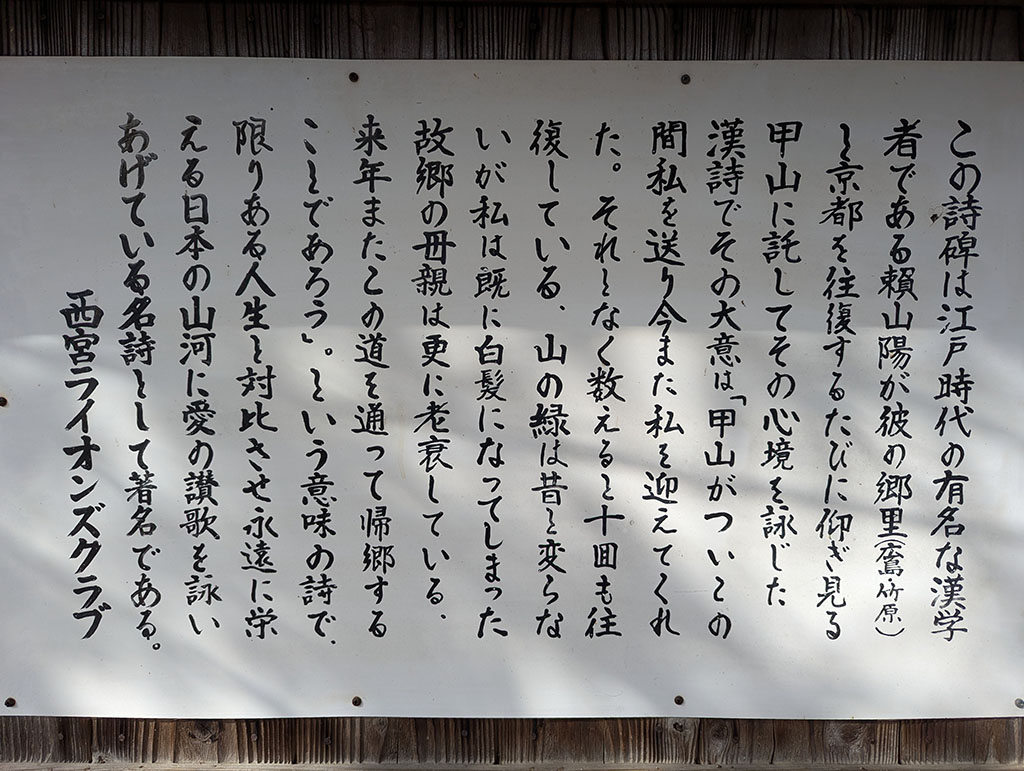 この詩碑は江戸時代の有名な漢学
者である賴山陽が彼の郷里(竹原)
と京都を往復するたびに仰ぎ見る
甲山に託してその心境を詠じた
漢詩でその大意は「甲山がついこの
間私を送り今また私を迎えてくれ
た。それとなく数えると十回も往
復している、山の緑は昔と変らな
いが私は既に白髪になってしまった
故郷の母親は更に老衰している、
来年またこの道を通って帰郷する
ことであろう」。という意味の詩で、
限りある人生と対比させ永遠に栄
える日本の山河に愛の讃歌を詠い
あげている名詩として著名である。
西宮ライオンズクラブ